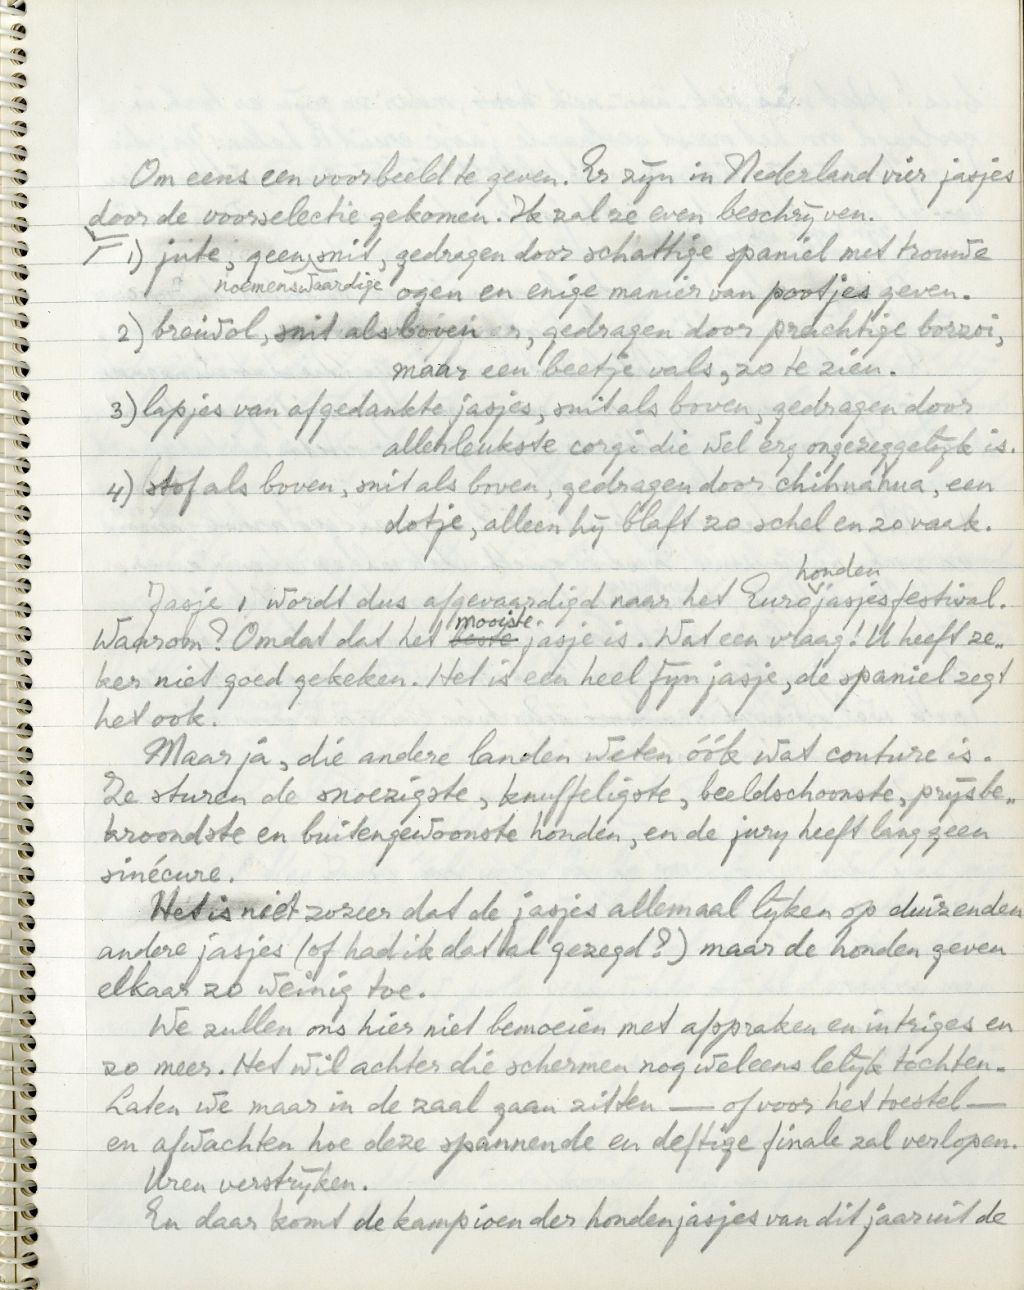 Om eens een voorbeeld te geven. Er zijn in Nederland vier jasjes
door de voorselectie gekomen. Ik zal ze even beschrijven.
1) jute, geen snit, gedragen door schattige spaniel met trouwe
noemenswaardige ogen en enige manier van pootjes geven.
2) breiwol, snit als boven, gedragen door prachtige borzoi,
maar een beetje vals, zo te zien.
3) lapjes van afgedankte jasjes, snit als boven, gedragen door
allerleukste corgi die wel erg ongezeggelijk is.
4) stof als boven, snit als boven, gedragen door chihuahua, een
dotje, alleen hij blaft zo schel en zo vaak.
honden
Jasje 1 wordt dus afgevaardigd naar het Eurojasjesfestival.
mooiste
Waarom? Omdat dat het beste jasje is. Wat een vraag! U heeft ze-
ker niet goed gekeken. Het is een heel fijn jasje, de spaniel zegt
het ook.
Maar ja, die andere landen weten óók wat couture is.
Ze sturen de snoezigste, knuffeligste, beeldschoonste, prijsbe-
kroondste en buitengewoonste honden, en de jury heeft lang geen
sinécure.
Het is niet zozeer dat de jasjes allemaal lijken op duizenden
andere jasjes (of had ik dat al gezegd?) maar de honden geven
elkaar zo weinig toe.
We zullen ons hier niet bemoeien met afspraken en intriges en
zo meer. Het wil achter die schermen nog weleens lelijk tochten.
Laten we maar in de zaal gaan zitten — of voor het toestel —
en afwachten hoe deze spannende en deftige finale zal verlopen.
Uren verstrijken.
En daar komt de kampioen der hondenjasjes van dit jaar uit de